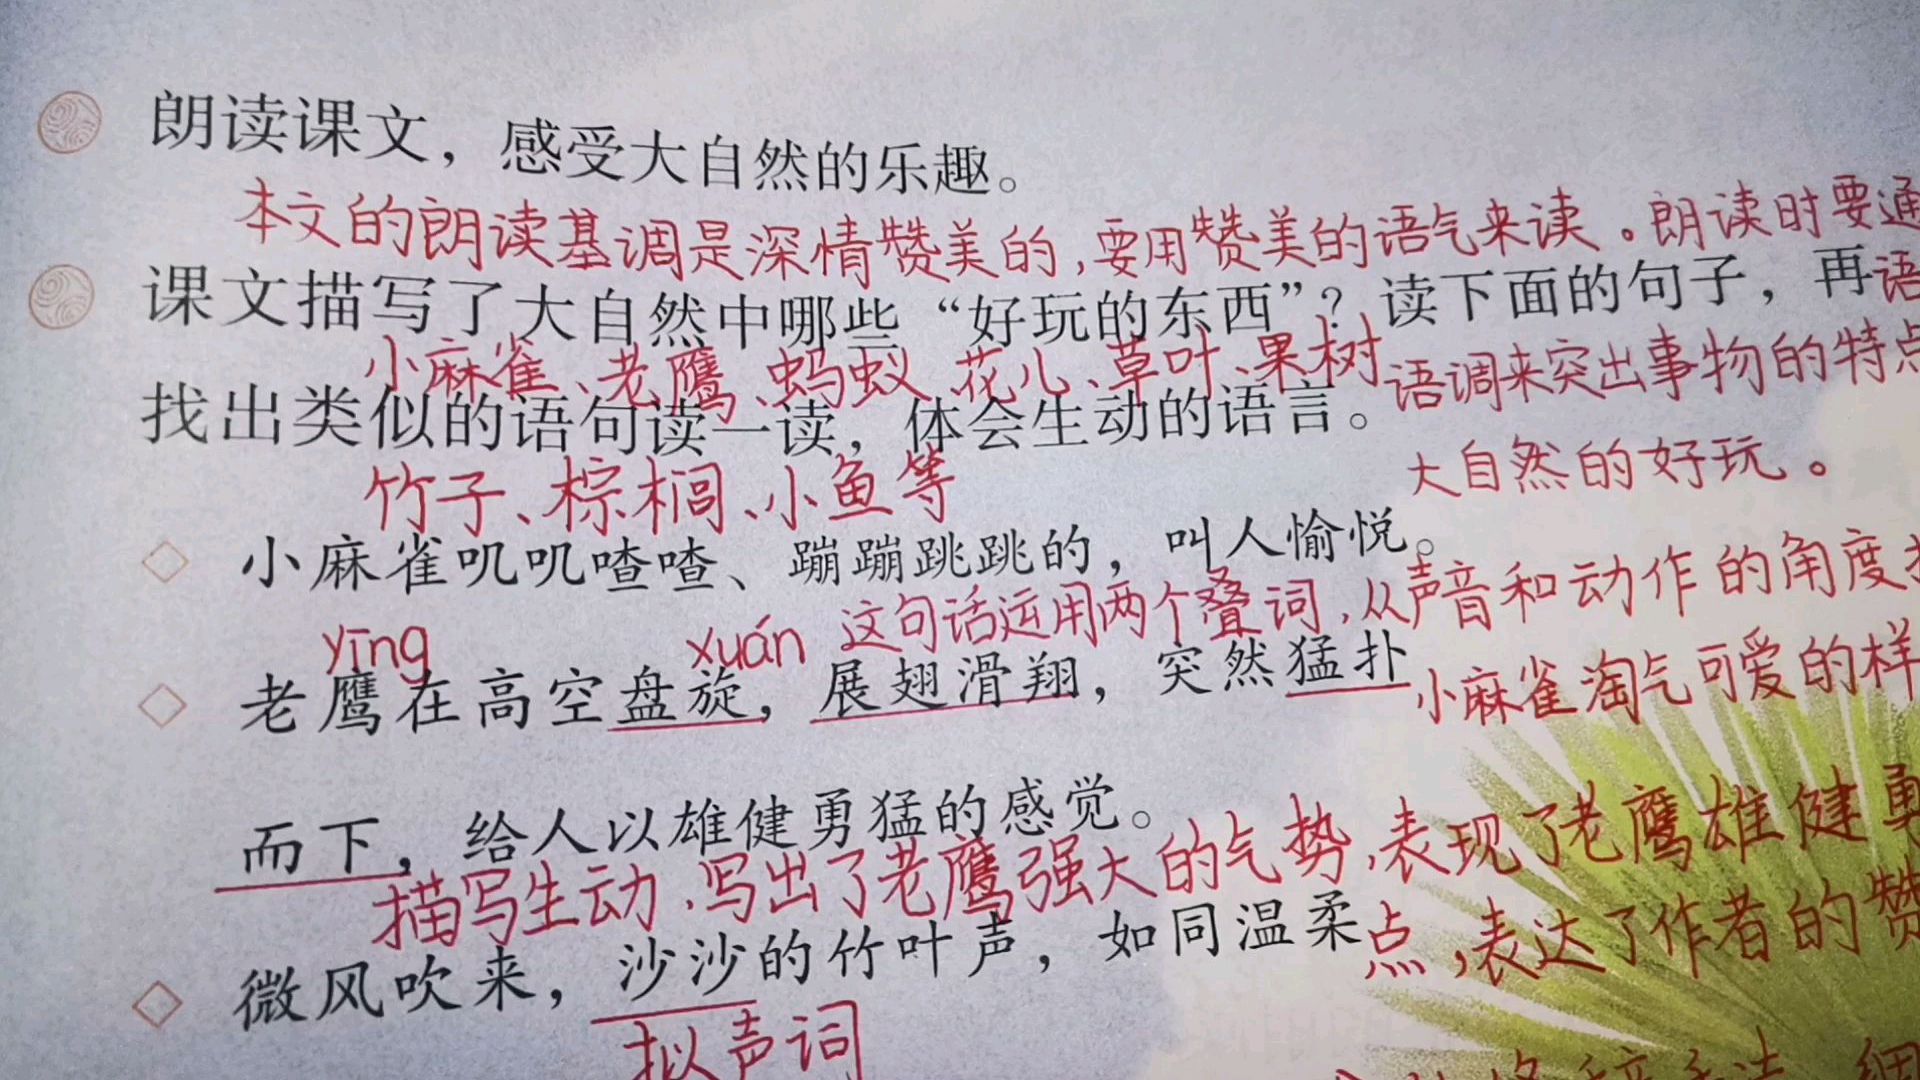 朗读课文，感受大自然的乐趣。
本文的朗读基调是深情赞美的,要用赞美的语气来读。朗读时要通
课文描写了大自然中哪些“好玩的东西”？读下面的句子，再语
小麻雀、老鹰、蚂蚁、花儿、草叶、果树
语调来突出事物的特点
找出类似的语句读一读，体会生动的语言。
大自然的好玩。
竹子、棕榈、小鱼等
小麻雀叽叽喳喳、蹦蹦跳跳的，叫人愉悦。
yīng xuán 这句话运用两个叠词,从声音和动作的角度
老鹰在高空盘旋，展翅滑翔，突然猛扑
小麻雀淘气可爱的样
而下，给人以雄健勇猛的感觉。
描写生动.写出了老鹰强大的气势,表现了老鹰雄健勇
点,表达了作者的赞
微风吹来，沙沙的竹叶声，如同温柔
拟声词